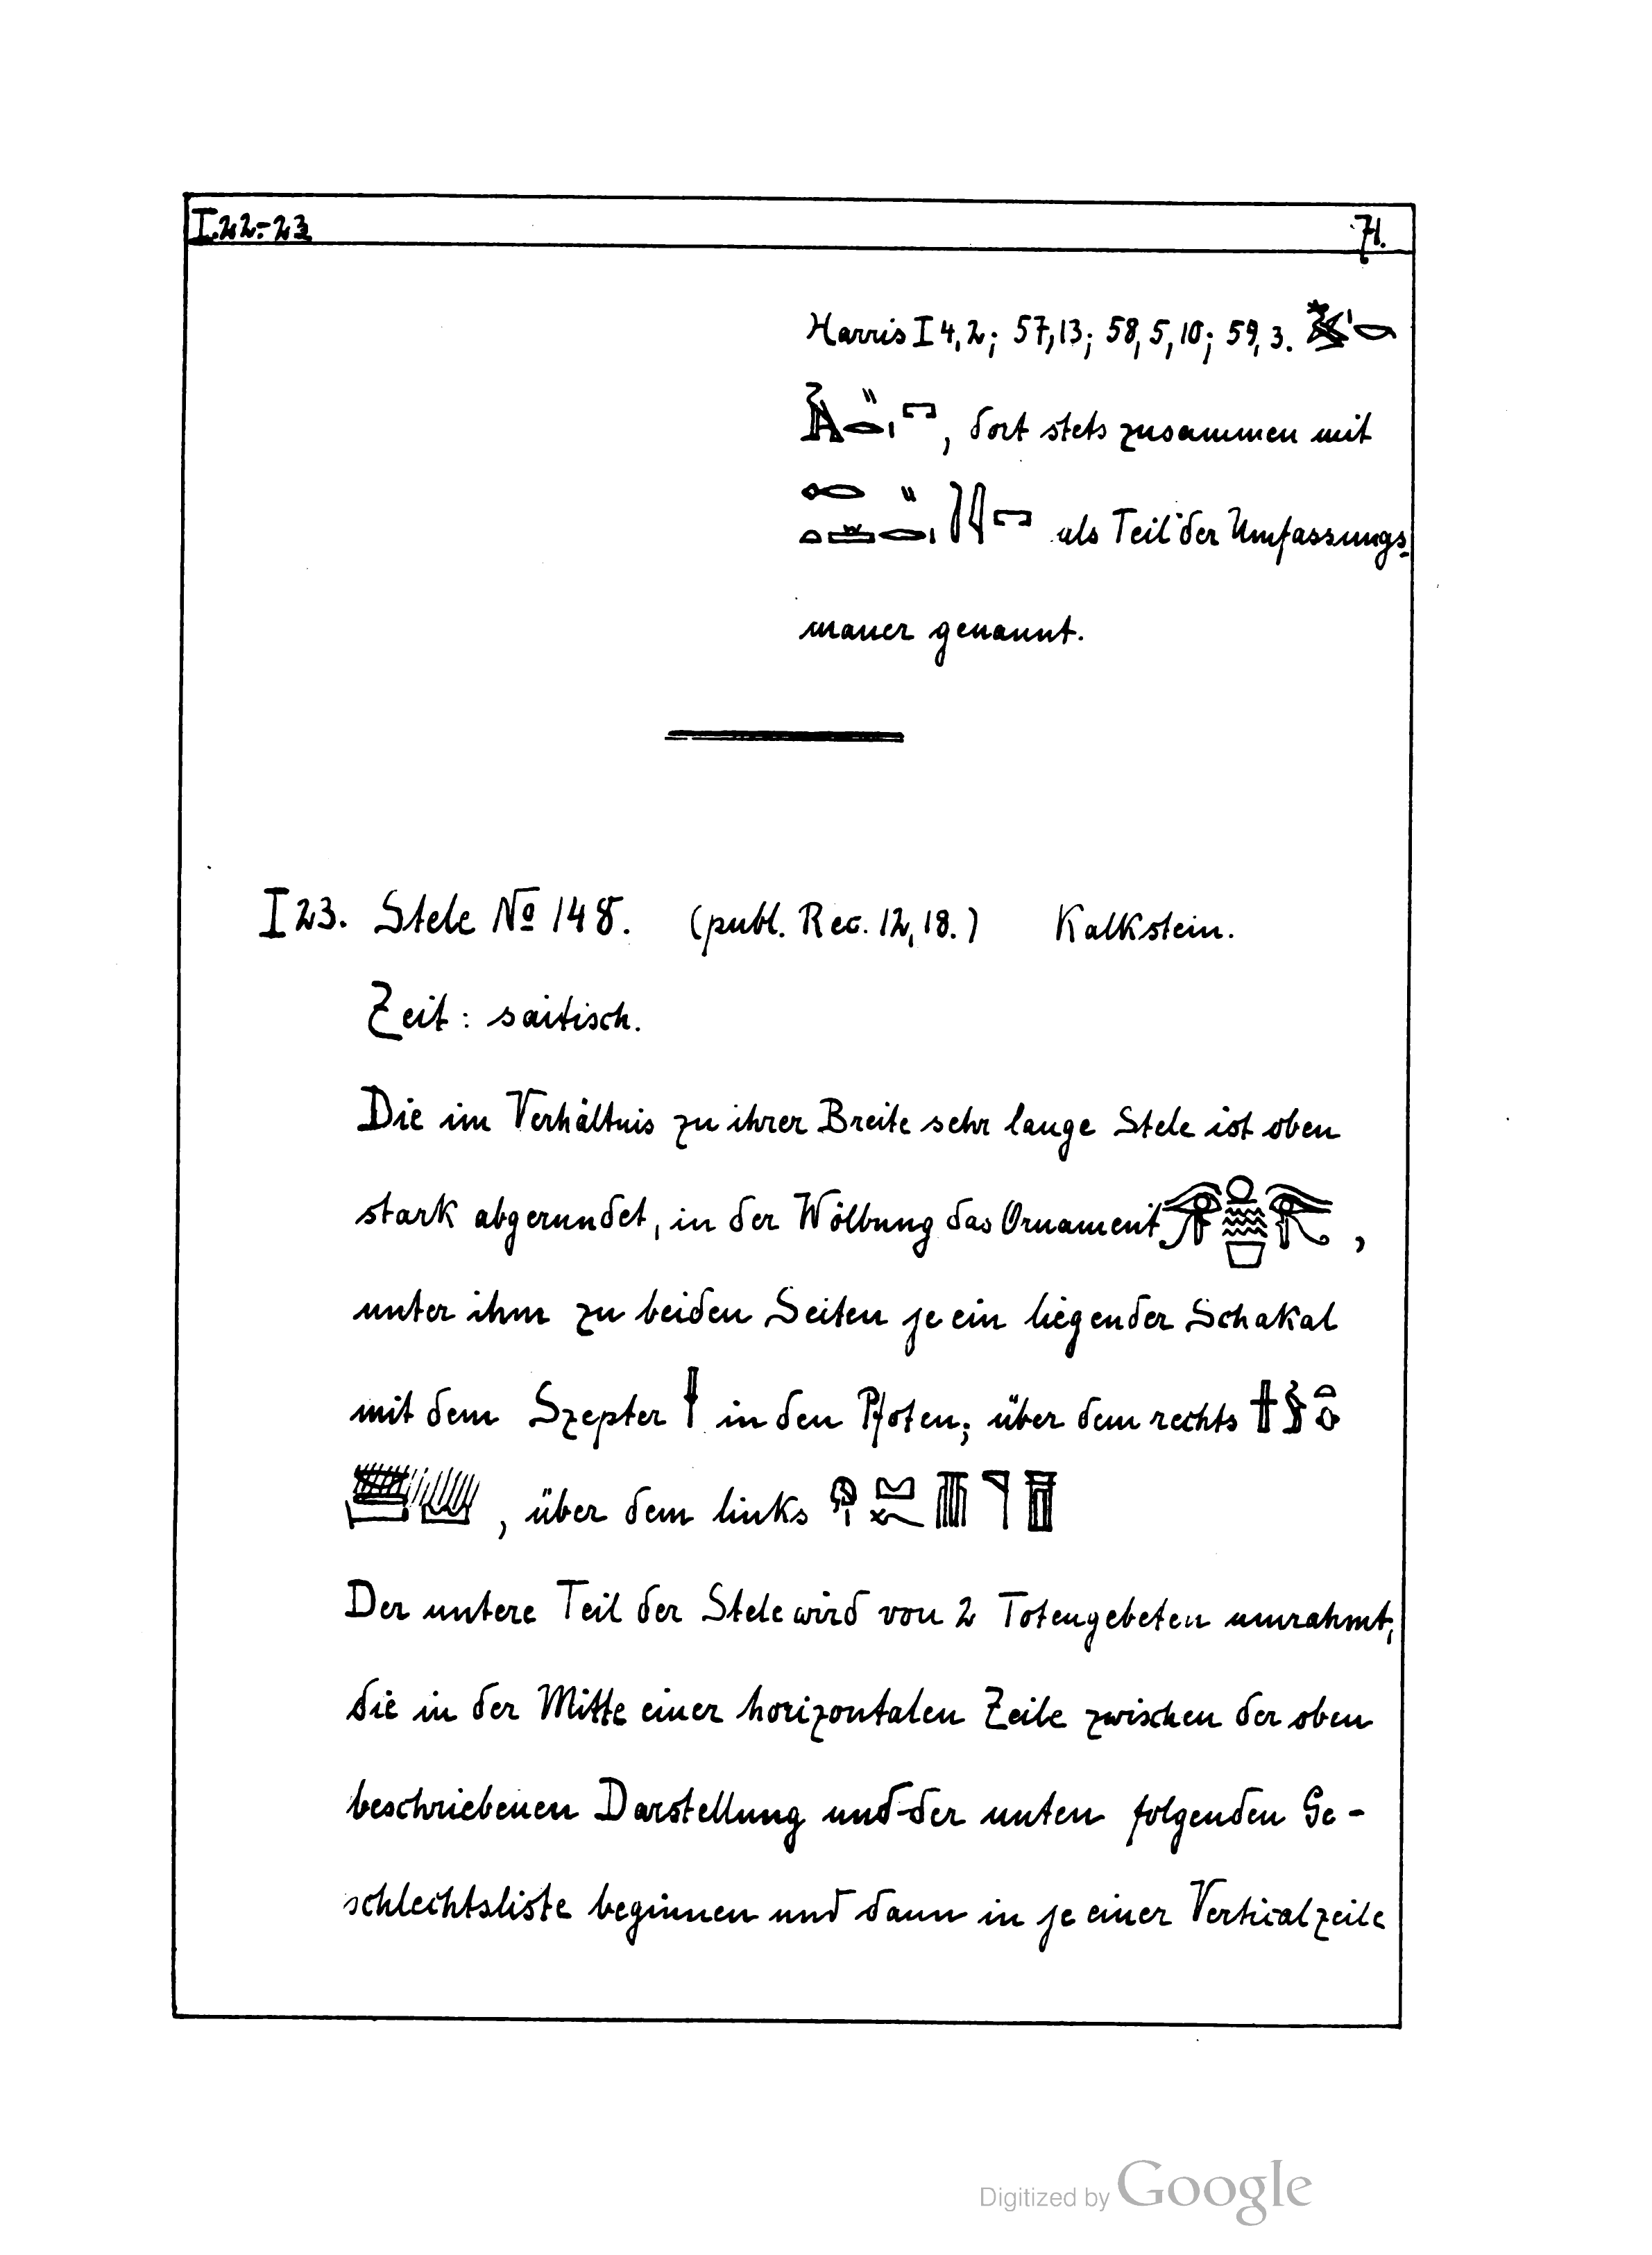 I.22-23 71.
Harris I 4,2; 57,13; 58,5,10; 59,3.
, dort stets zusammen mit
als Teil der Umfassungs-
mauer genannt.
I 23. Stele No 148. (publ. Rec. 12,18.) Kalkstein.
Zeit: saitisch.
Die im Verhältnis zu ihrer Breite sehr lange Stele ist oben
stark abgerundet, in der Wölbung das Ornament ,
unter ihm zu beiden Seiten je ein liegender Schakal
mit dem Szepter in den Pfoten; über dem rechts
, über dem links
Der untere Teil der Stele wird von 2 Totengebeten umrahmt,
die in der Mitte einer horizontalen Zeile zwischen der oben
beschriebenen Darstellung und der unten folgenden Ge-
schlechtsliste beginnen und dann in je einer Verticalzeile
Digitized by Google